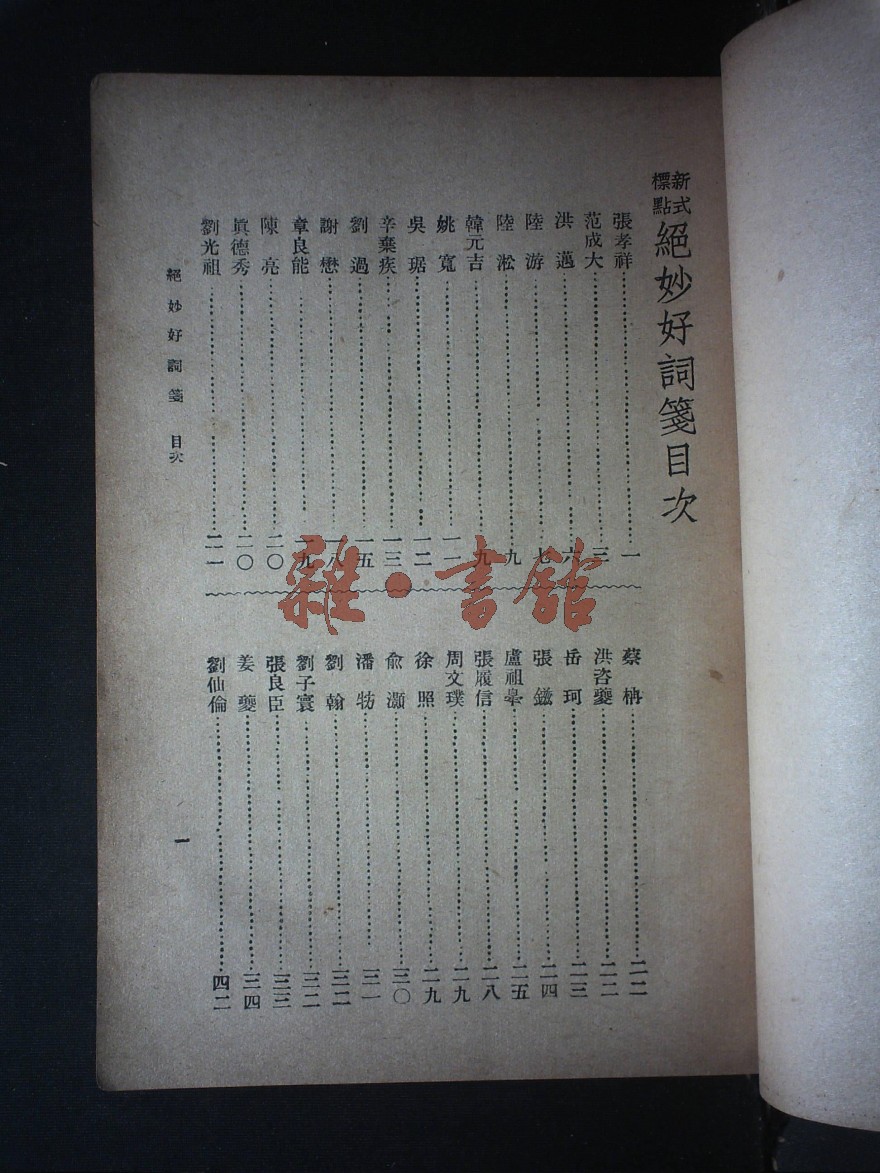 新式標點
絕妙好詞箋目次
張孝祥……一
范成大……三
洪邁……六
陸游……七
陸淞……九
韓元吉……九
姚寬……一一
吳琚……一二
辛棄疾……一三
劉過……一五
謝懋……一八
章良能……一九
陳亮……二〇
眞德秀……二〇
劉光祖……二一
蔡柟……二二
洪咨夔……二二
岳珂……二三
張鎡……二四
盧祖皋……二五
張履信……二八
周文璞……二九
徐照……二九
俞灝……三〇
潘牥……三一
劉翰……三二
劉子寰……三二
張良臣……三三
姜夔……三四
劉仙倫……四二
絕妙好詞箋 目次
一
雜·書館